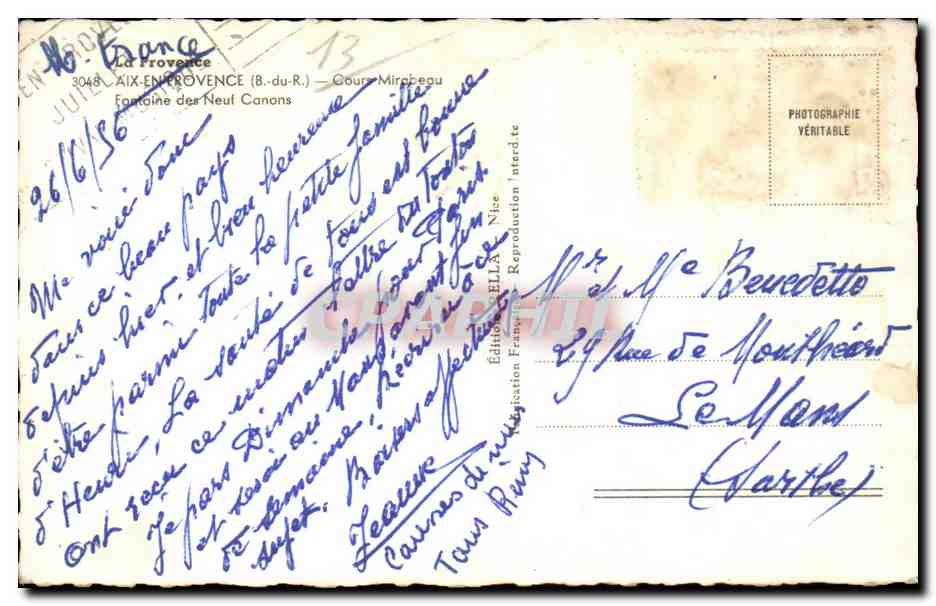 France
La Provence
3048 AIX-EN-PROVENCE (B.-du-R.) — Cours Mirabeau
Fontaine des Neuf Canons
13
26/6/56
Me voici donc
dans ce beau pays
depuis hier et bien heureuse
d'être parmi toute la petite famille
d'Henri, La santé de tous est bonne
ont reçu ce matin lettre
Je pars Dimanche pour Paris
et serai au Mans
de semaine, écrirai à ce
sujet. Baisers affectueux
Jeanne
Tours
Éditions ELLA Nice
Fabrication Française Reproduction Interdite
PHOTOGRAPHIE
VÉRITABLE
Mr et Me Benedetto
29 Rue de Montbéard
Le Mans
(Sarthe)
CPAPHIL